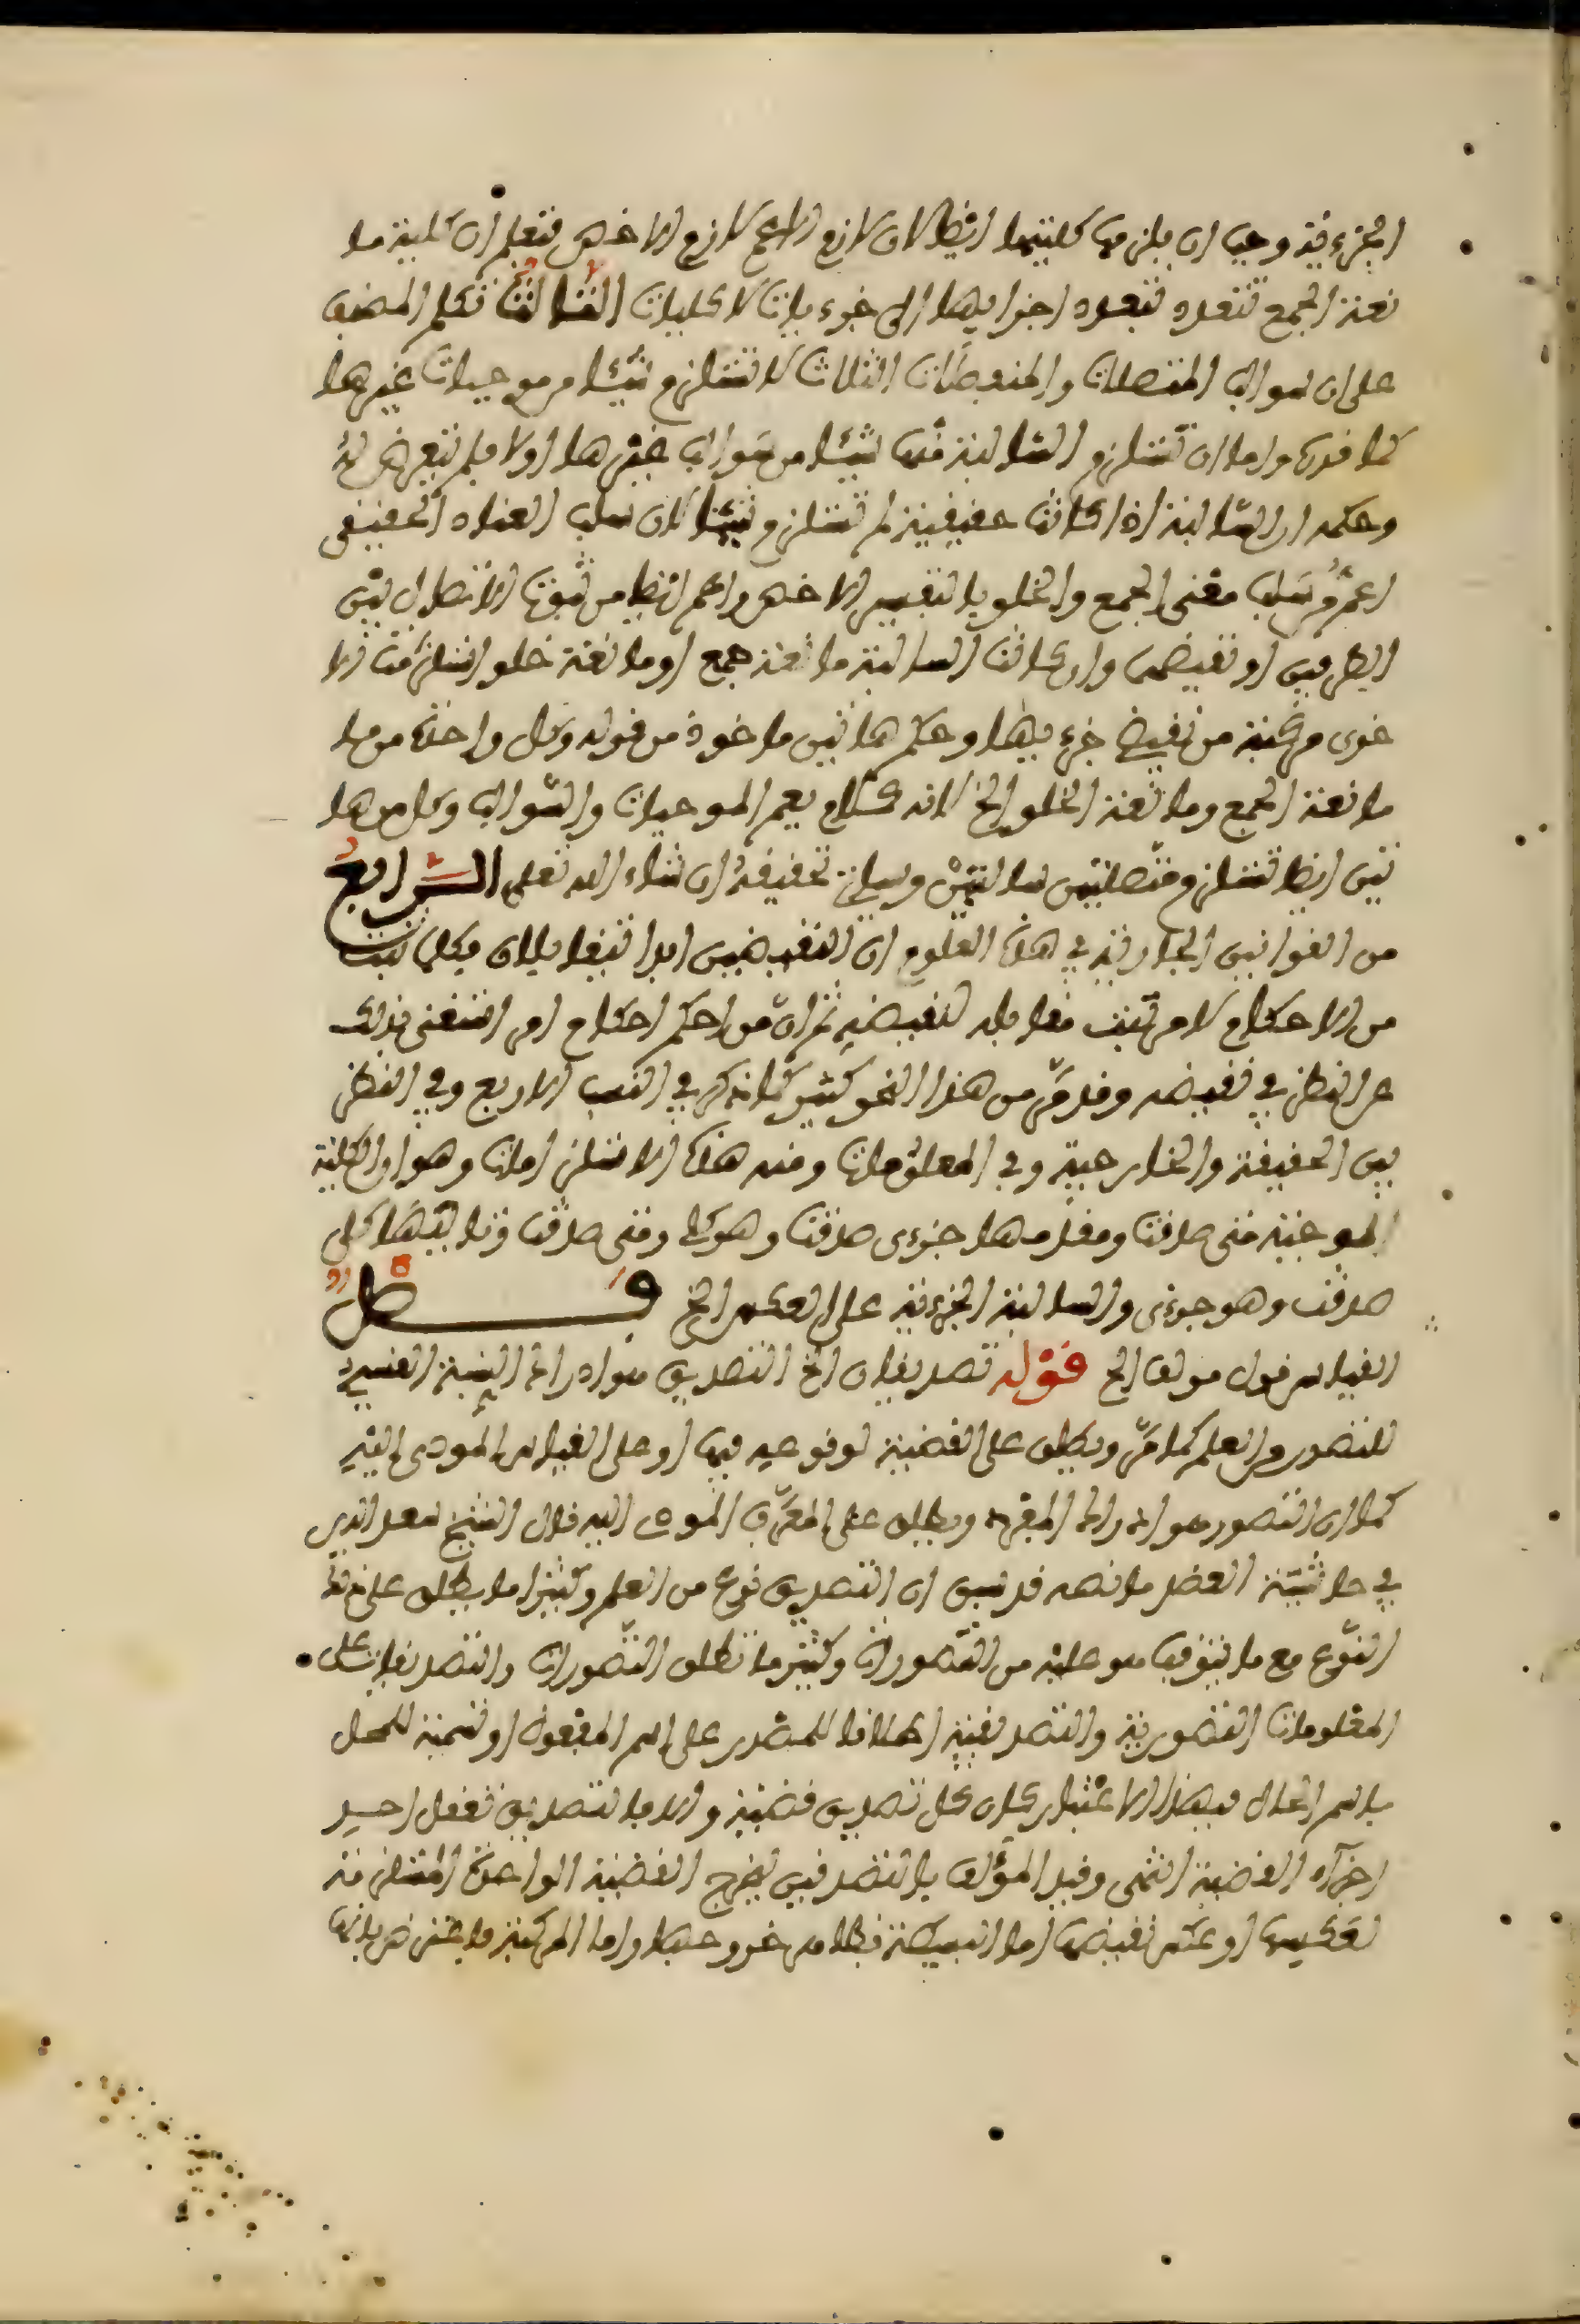 الجزءية وجب ان يلزمها كليتهما ايضا لان لازم الاعم لازم الاخص فتعلم ان كلية ما
نعة الجمع تتعدد بتعدد اجزايها الى جزءيات لا كليات الثالث تكلم المصنف
على ان سوالب المتصلات والمنفصلات الثلاث لا تستلزم شيئا من موجبات غيرها
كما قدرنا واما ان تستلزم السالبة منها شيئا من سوالب غيرها اولا فلم يتعرض له
وحكمه ان السالبة اذا كانت حقيقية لم تستلزم شيئا لان سلب العناد الحقيقي
اعم من سلب منعى الجمع والخلو بالتفسير الاخص واعم ايضا من ثبوت الاتصال بين
الطرفين او نقيضهما وان كانت السالبة مانعة جمع او مانعة خلو استلزمت الا
خرى مركبة من نقيض جزءيها وحكم هاتين ماخوذ من قوله وكل واحدة من ما
مانعة الجمع ومانعة الخلو الخ لانه كلام يعم الموجبات والسوالب وكل من ها
تين ايضا تستلزم متصلتين سالبتين وسياتي تحقيقه ان شاء الله تعلى الرابع
من القوانين الجارية في هذه العلوم ان النقيضين ابدا يتقابلان فكلما ثبت
من الاحكام لامر يثبت مقابله لنقيضه ثم ان من احكم احكام امر استغنى بذلك
عن النظر في نقيضه وقد مر من هذا النحو كثير كما ذكر في النسب الاربع وفي النظر
بين الحقيقة والخارجية وفي المعلومات ومنه هذه الاستلزامات وهو ان الكلية
الموجبة متى صدقت ومقدمها جزءي صدقت وهو كلي ومتى صدقت وتاليها كلي
صدقت وهو جزءي والسالبة الجزءية على العكس الخ فصل
القياس قول مولف الخ قوله تصديقان الخ التصديق هو ادراك النسبة القسيم
للتصور من العلم كما مر ويطلق على القضية لوقوعه فيها او على القياس المودى اليه
كما ان التصور هو ادراك المفرد ويطلق على المعرف الموصل اليه قال الشيخ سعد الدين
في حاشية العضد ما نصه قد سبق ان التصديق نوع من العلم وكثيرا ما يطلق على ذلك
النوع مع ما يتوقف هو عليه من التصورات وكثير ما تطلق التصورات والتصديقات على
المعلومات التصورية والتصديقية اطلاقا للمصدر على اسم المفعول او تسمية للمحل
باسم الحال فبهذا الاعتبار كان كل تصديق قضية والا فالتصديق تعقل احد
اجزاء القضية انتهى وقيد المؤلف بالتصديقين ليخرج القضية الواحدة المستلزمة
لعكسها او عكس نقيضها اما البسيطة فظاهر خروجها واما المركبة فاعترض بانها